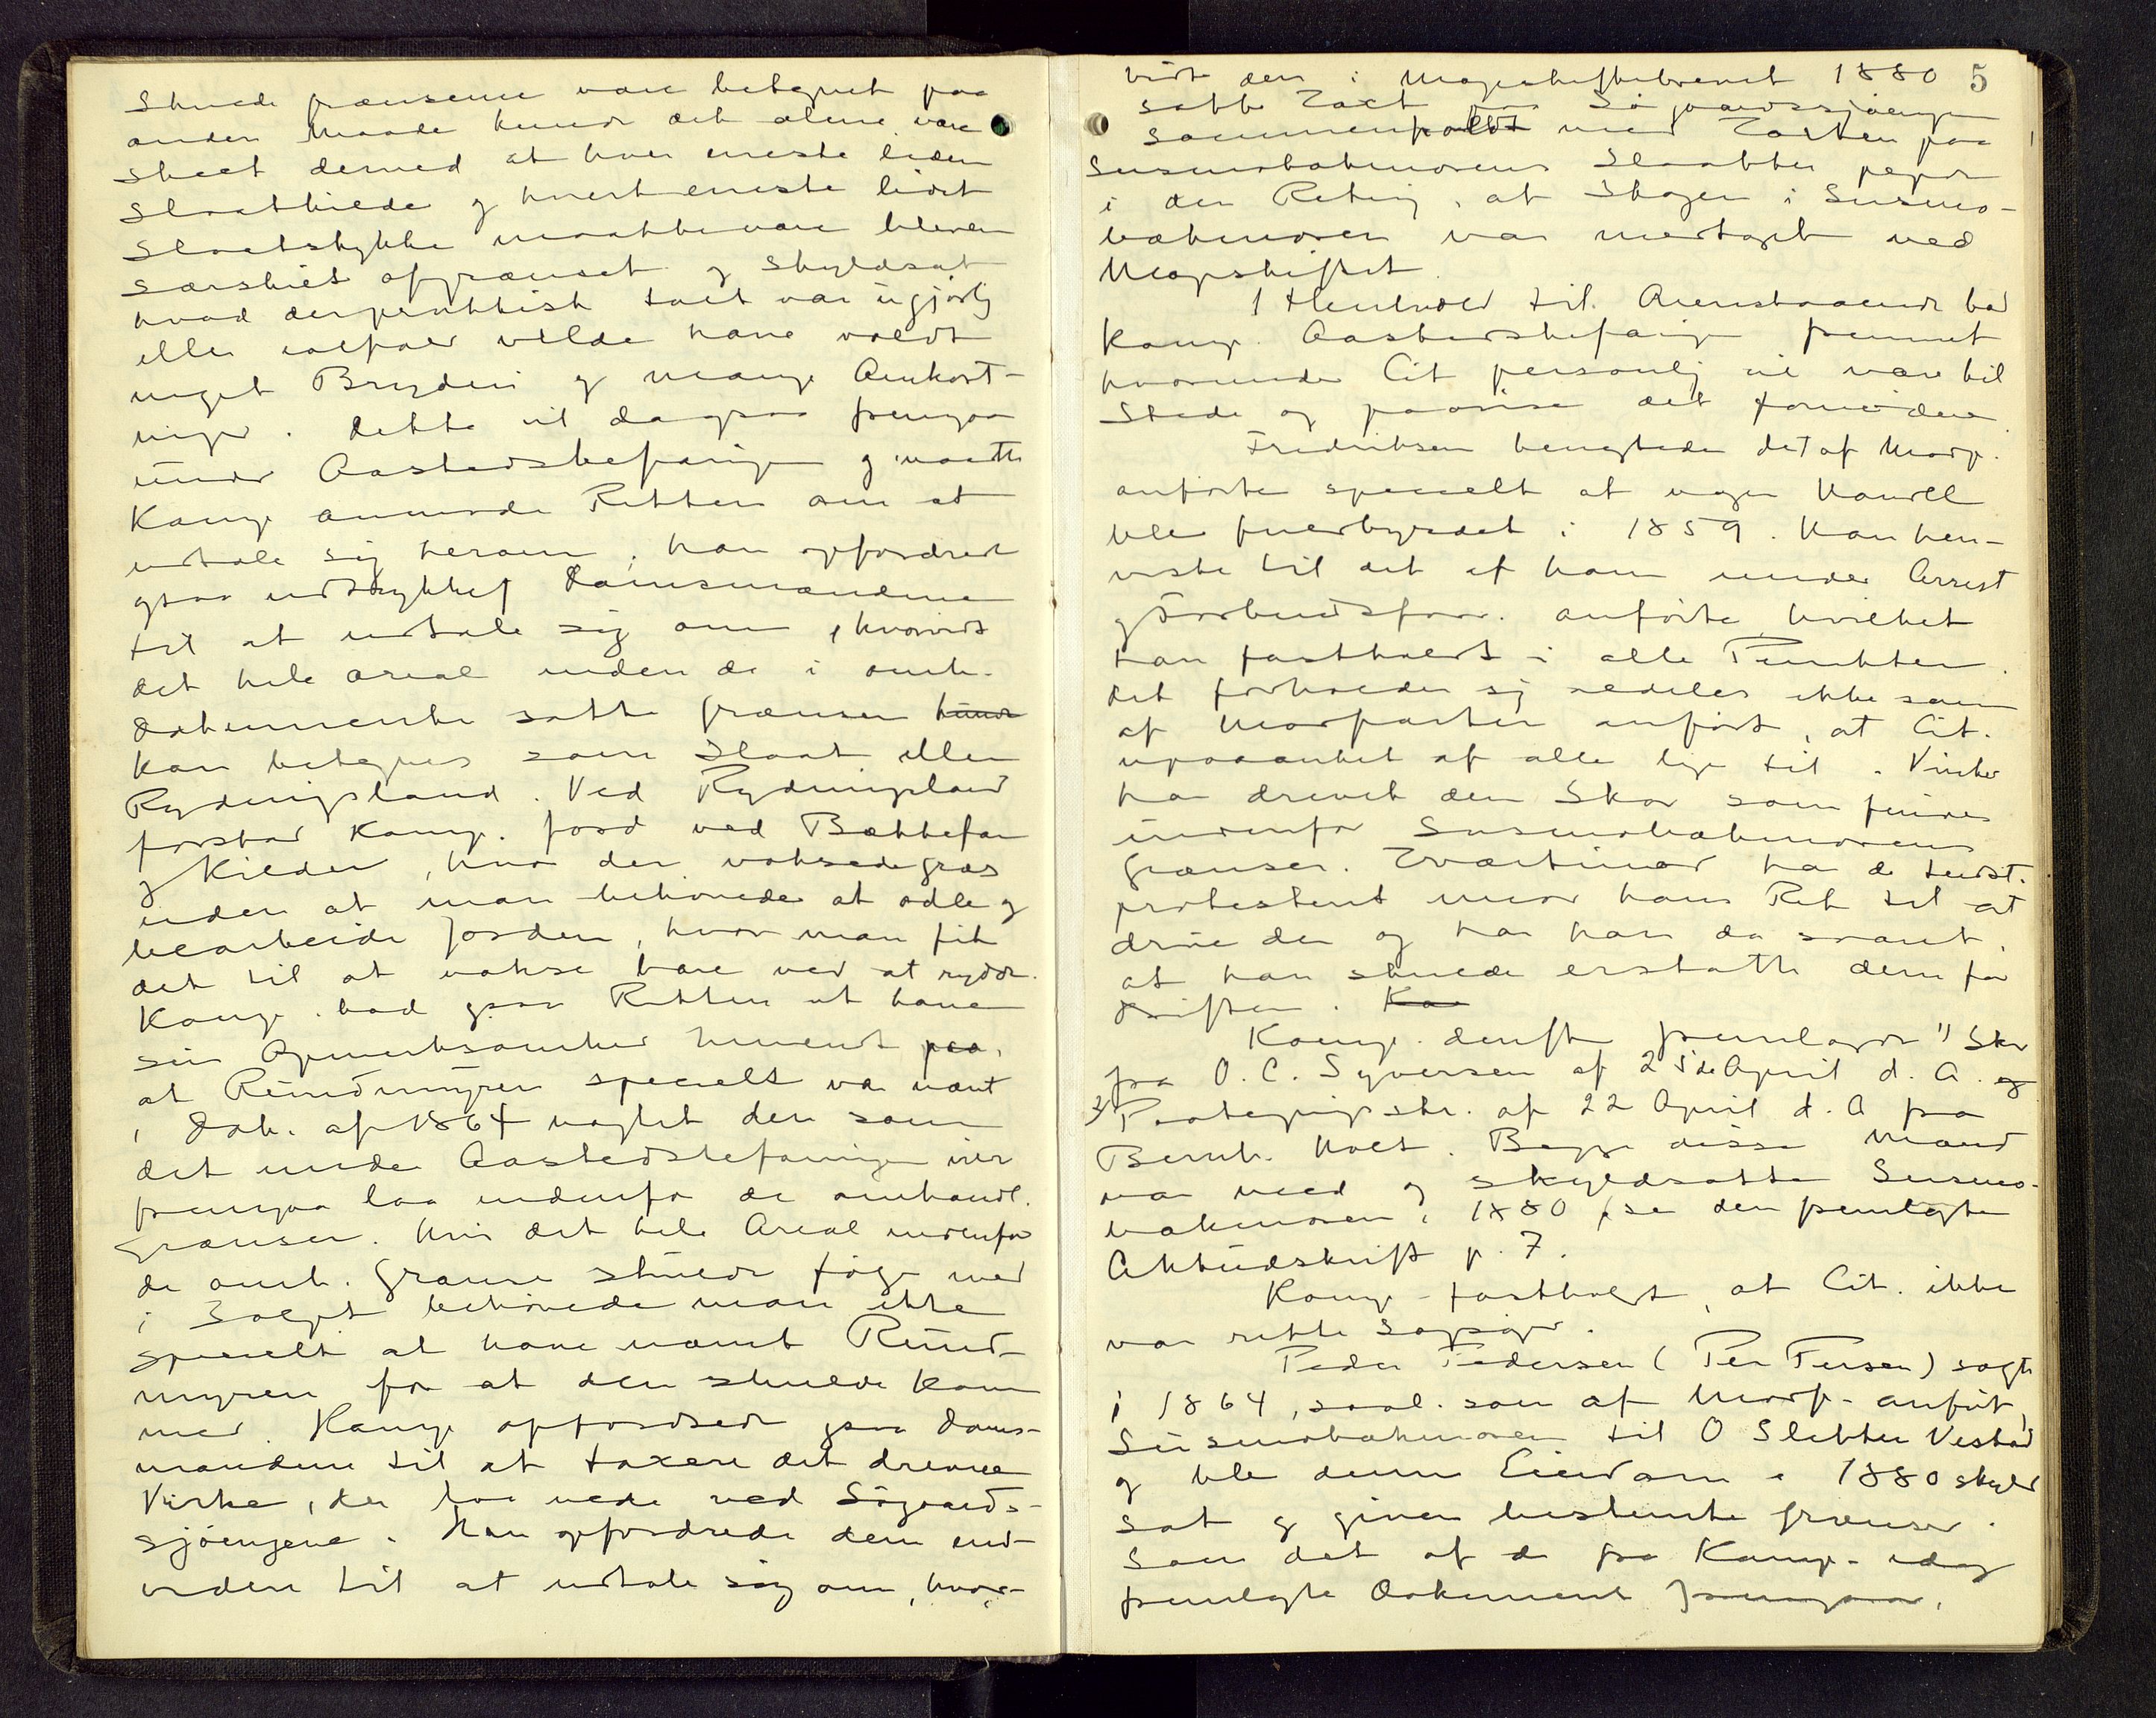 Skulde grænserne være betegnet paa
anden Maade kunde det alene være
skeet derved at hver eneste liden
Slaattilede og hvert eneste lidet
Slaatstykke maatte være bleven
særskilt afgrænset og skyldsat
hvad der praktisk talt var ugjørlig
eller ialfald vilde have voldt
meget Bryderi og mange Omkost-
ninger. Dette vil da ogsaa fremgaa
under Aastedsbefaringen og maatte
Komp. anmode Retten om at
udtale sig herom, han opfordred
ogsaa udtrykkel. Domsmændene
til at udtale sig om, hvorvidt
det hele areal inden de i omh.
dokumenter satte grænser kunde
kan betegnes som Slaat eller
Rydningsland. Ved Rydningsland
forstod Komp. Jord ved Bækkefar
og Kilder, hvor der voksede græs
uden at man behøvede at ødle og
bearbeide Jorden, hvor man fik
det til at vokse bare ved at rydde.
Komp. bad ogsaa Retten at have
sin Opmerksomhed henvendt paa,
at Rundmyren specielt var nævnt
i Dok. af 1864 uagtet den som
det under Aastedsbefaringen vil
fremgaa laa indenfor de omhandl.
grænser. Hvis det hele Areal indenfor
de omh. Grænser skulde følge med
i Salget behøvede man ikke
specielt at have nævnt Rund-
myren for at den skulde komme
med. Komp. opfordrede ogsaa Doms-
mændene til at taxere det drevne
Virke, der laa nede ved Søgaards-
sjøengene. Han opfordrede dem end-
videre til at udtale sig om, hvor-
5
vidt den i Mageskiftebrevet 1880
satte Taxt paa Søgaardssjøengen
sammenholdt med Taxten paa
Susmobakmosens Slaatter peger
i den Retning, at Skogen i Susmo-
bakmosen var medtaget ved
Mageskiftet.
I Henhold til Ovenstaaende bad
Komp. Aastedsbefaring fremmet
hvorunder Cit. personlig vil være til
Stede og paavise det fornødne.
Fredriksen benegtede det af Modp.
anførte specielt at nogen Handel
blev fuldbyrdet i 1859. Han hen-
viste til det af ham under Arrest
og Forbudsforr. anførte, hvilket
han fastholdt i alle Punkter.
Det forholder sig aldeles ikke som
af Modparten anført, at Cit.
upaaanket af alle lige til Vinter
har drevet den Skov som findes
indenfor Susmobakmosens
Grænser. Tværtimod har de Indst.
protesteret mod hans Ret til at
drive den og har han da svaret,
at han skulde erstatte dem for
Driften. Ko
Komp. derefter fremlagde 1) Skr
fra O. C. Syversen af 25de April d. A. og
2) Paategningsskr. af 22 April d. A fra
Bernh. Holt. Begge disse Mænd
var med og skyldsatte Susmo-
bakmosen i 1880, se den fremlagte
Aktudskrift p. 7.
Komp. fastholdt, at Cit. ikke
var rette Sagsøger.
Peder Pedersen (Per Persen) solgte
i 1864, saal. som af Modp. anført,
Susmobakmosen til O Sletten Vestad
og blev denne Eiendom i 1880 skyld
sat og given bestemte grænser.
Som det af de fra Komp. idag
fremlagte Dokument fremgaar,